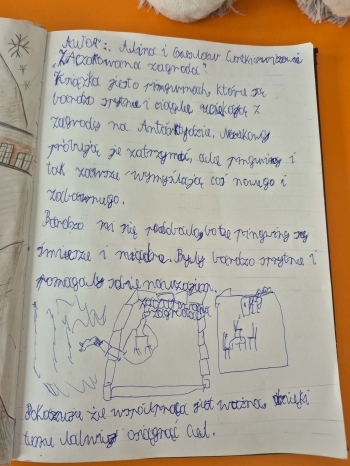 Autor: Alina i Czesław Centkiewiczowie
"Zaczarowana zagroda"
Książka jest o pingwinach, które są
bardzo sprytne i ciągle uciekają z
zagrody na Antarktydzie. Naukowcy
próbują je zatrzymać, ale pingwiny i
tak zawsze wymyślają coś nowego i
zabawnego.
Bardzo mi się podobało, bo te pingwiny są
śmieszne i mądre. Były bardzo sprytne i
pomagały sobie nawzajem.
zaczarowana
zagroda
Pokazuje że współpraca jest ważna, dzięki
temu łatwiej osiągnąć cel.